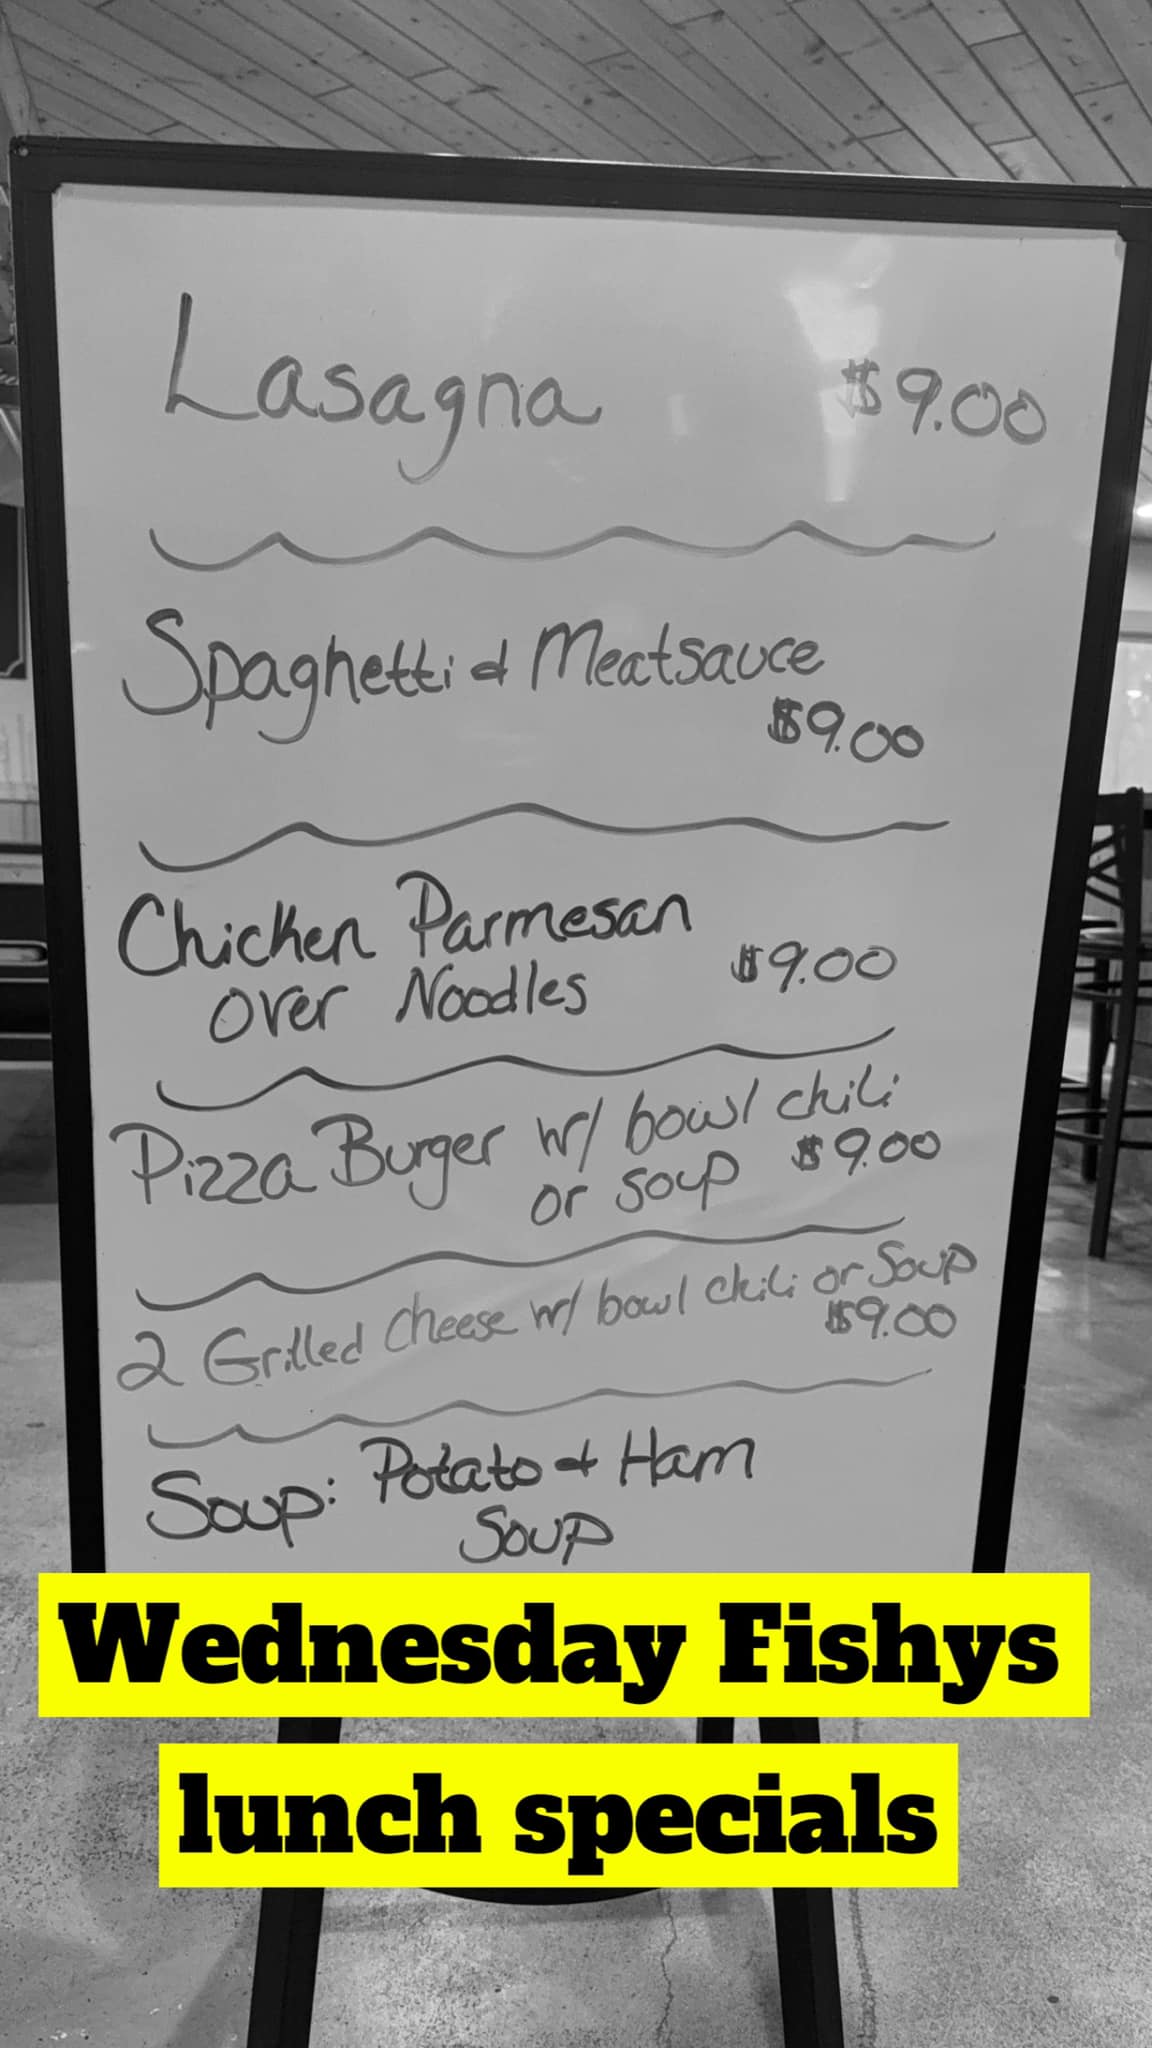 Lasagna $9.00
Spaghetti & Meatsauce
$9.00
Chicken Parmesan
over Noodles $9.00
Pizza Burger w/ bowl chili
or soup $9.00
2 Grilled cheese w/ bowl chili or Soup
$9.00
Soup: Potato & Ham
Soup
Wednesday Fishys
lunch specials